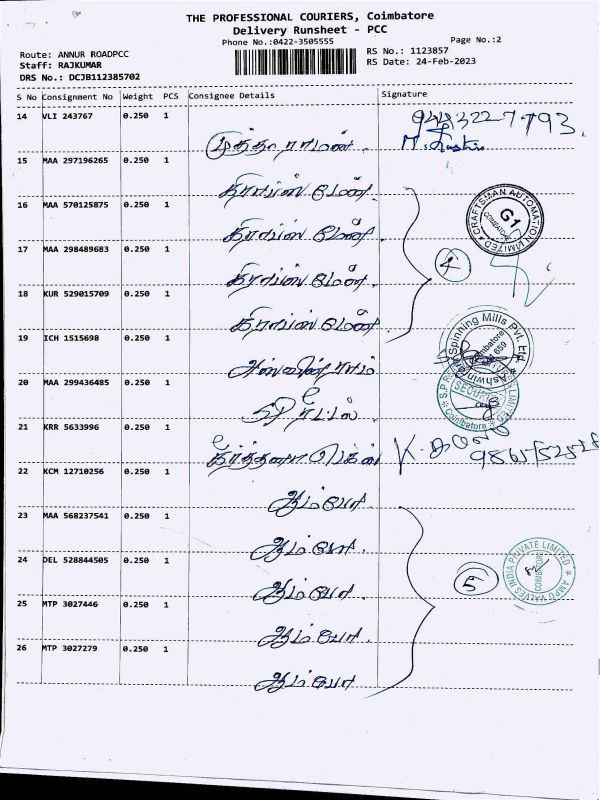 THE PROFESSIONAL COURIERS, Coimbatore
Delivery Runsheet - PCC
Phone No.:0422-3505555
Page No.:2
Route: ANNUR ROADPCC
RS No.: 1123857
Staff: RAJKUMAR
RS Date: 24-Feb-2023
DRS No.: DCJB112385702
S No Consignment No Weight PCS Consignee Details Signature
14 VLI 243767 0.250 1
முத்து ராமன்.
15 MAA 297196265 0.250 1
கிராப்ஸ் மேன்.
16 MAA 570125875 0.250 1
கிராப்ஸ் மேன்
17 MAA 298489683 0.250 1
கிராப்ஸ் மேன்.
18 KUR 529015709 0.250 1
கிராப்ஸ் மேன்
4
CRAFTSMAN AUTOMATION LIMITED
G1
COIMBATORE
19 ICH 1515698 0.250 1
அஸ்வின் ராம்
Spinning Mills Pvt. Ltd.
Coimbatore
659
20 MAA 299436485 0.250 1
SP ராட்டல்
SECURITY
Coimbatore
21 KRR 5633996 0.250 1
கீர்த்தனா
K.
22 KCM 12710256 0.250 1
ஆம்போ
23 MAA 568237541 0.250 1
ஆம்போ.
24 DEL 528844505 0.250 1
ஆம்போ.
5
AMPO VALVES INDIA PRIVATE LIMITED
COIMBATORE
25 MTP 3027446 0.250 1
ஆம்போ.
26 MTP 3027279 0.250 1
ஆம்போ